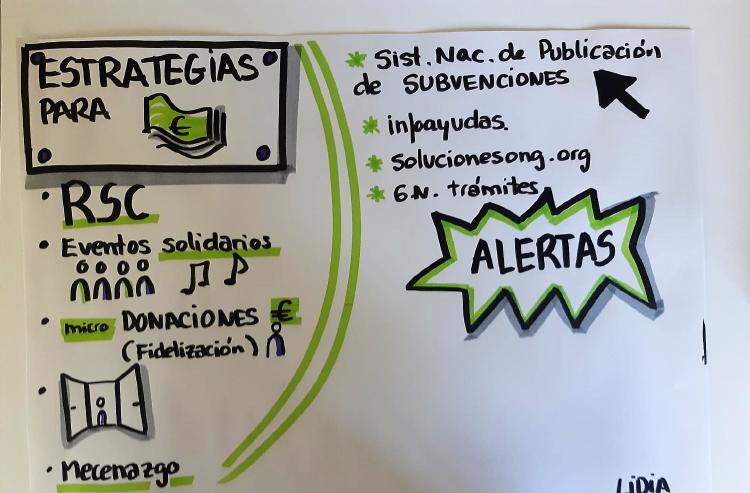 ESTRATEGIAS
PARA
€
• RSC
• Eventos solidarios
• micro DONACIONES €
(Fidelización)
• Mecenazgo
* Sist. Nac. de Publicación
de SUBVENCIONES
* infoayudas.
* solucionesong.org
* G.N. trámites
ALERTAS
LiDiA